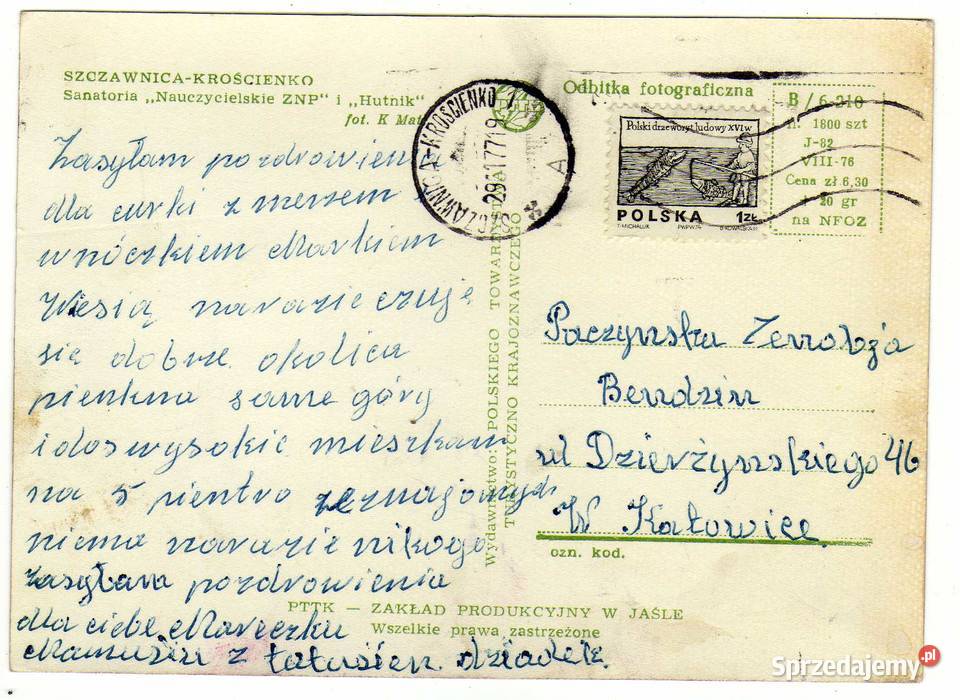 SZCZAWNICA-KROŚCIENKO
Sanatoria „Nauczycielskie ZNP" i „Hutnik"
fot. K Mat
Zasyłam pozdrowienia
dla curki z menzem i
wnóczkiem Markiem
Wiesią narazie czuję
się dobrze okolica
pienkna same góry
i dos wysokie mieszkam
na 5 pientro ze znajomych
niema narazie nikogo
zasyłam pozdrowienia
dla ciebe Mareczku
Mamusiu z tatusiem dziadek
PTTK — ZAKŁAD PRODUKCYJNY W JAŚLE
Wszelkie prawa zastrzeżone
Wydawnictwo: POLSKIEGO TOWARZYSTWA
TURYSTYCZNO KRAJOZNAWCZEGO
SZCZAWNICA-KROŚCIENKO 1
A
Odbitka fotograficzna
Polski drzeworyt ludowy XVI w
POLSKA 1ZŁ
T. MICHALUK PWPW 74
B / 6-210
n. 1800 szt
J-82
VIII-76
Cena zł 6,30
+ 20 gr
na NFOZ
Paczynska Zenobja
Bendzin
ul Dzierżynskiego 46
W Katowice
ozn. kod.
Sprzedajemy.pl